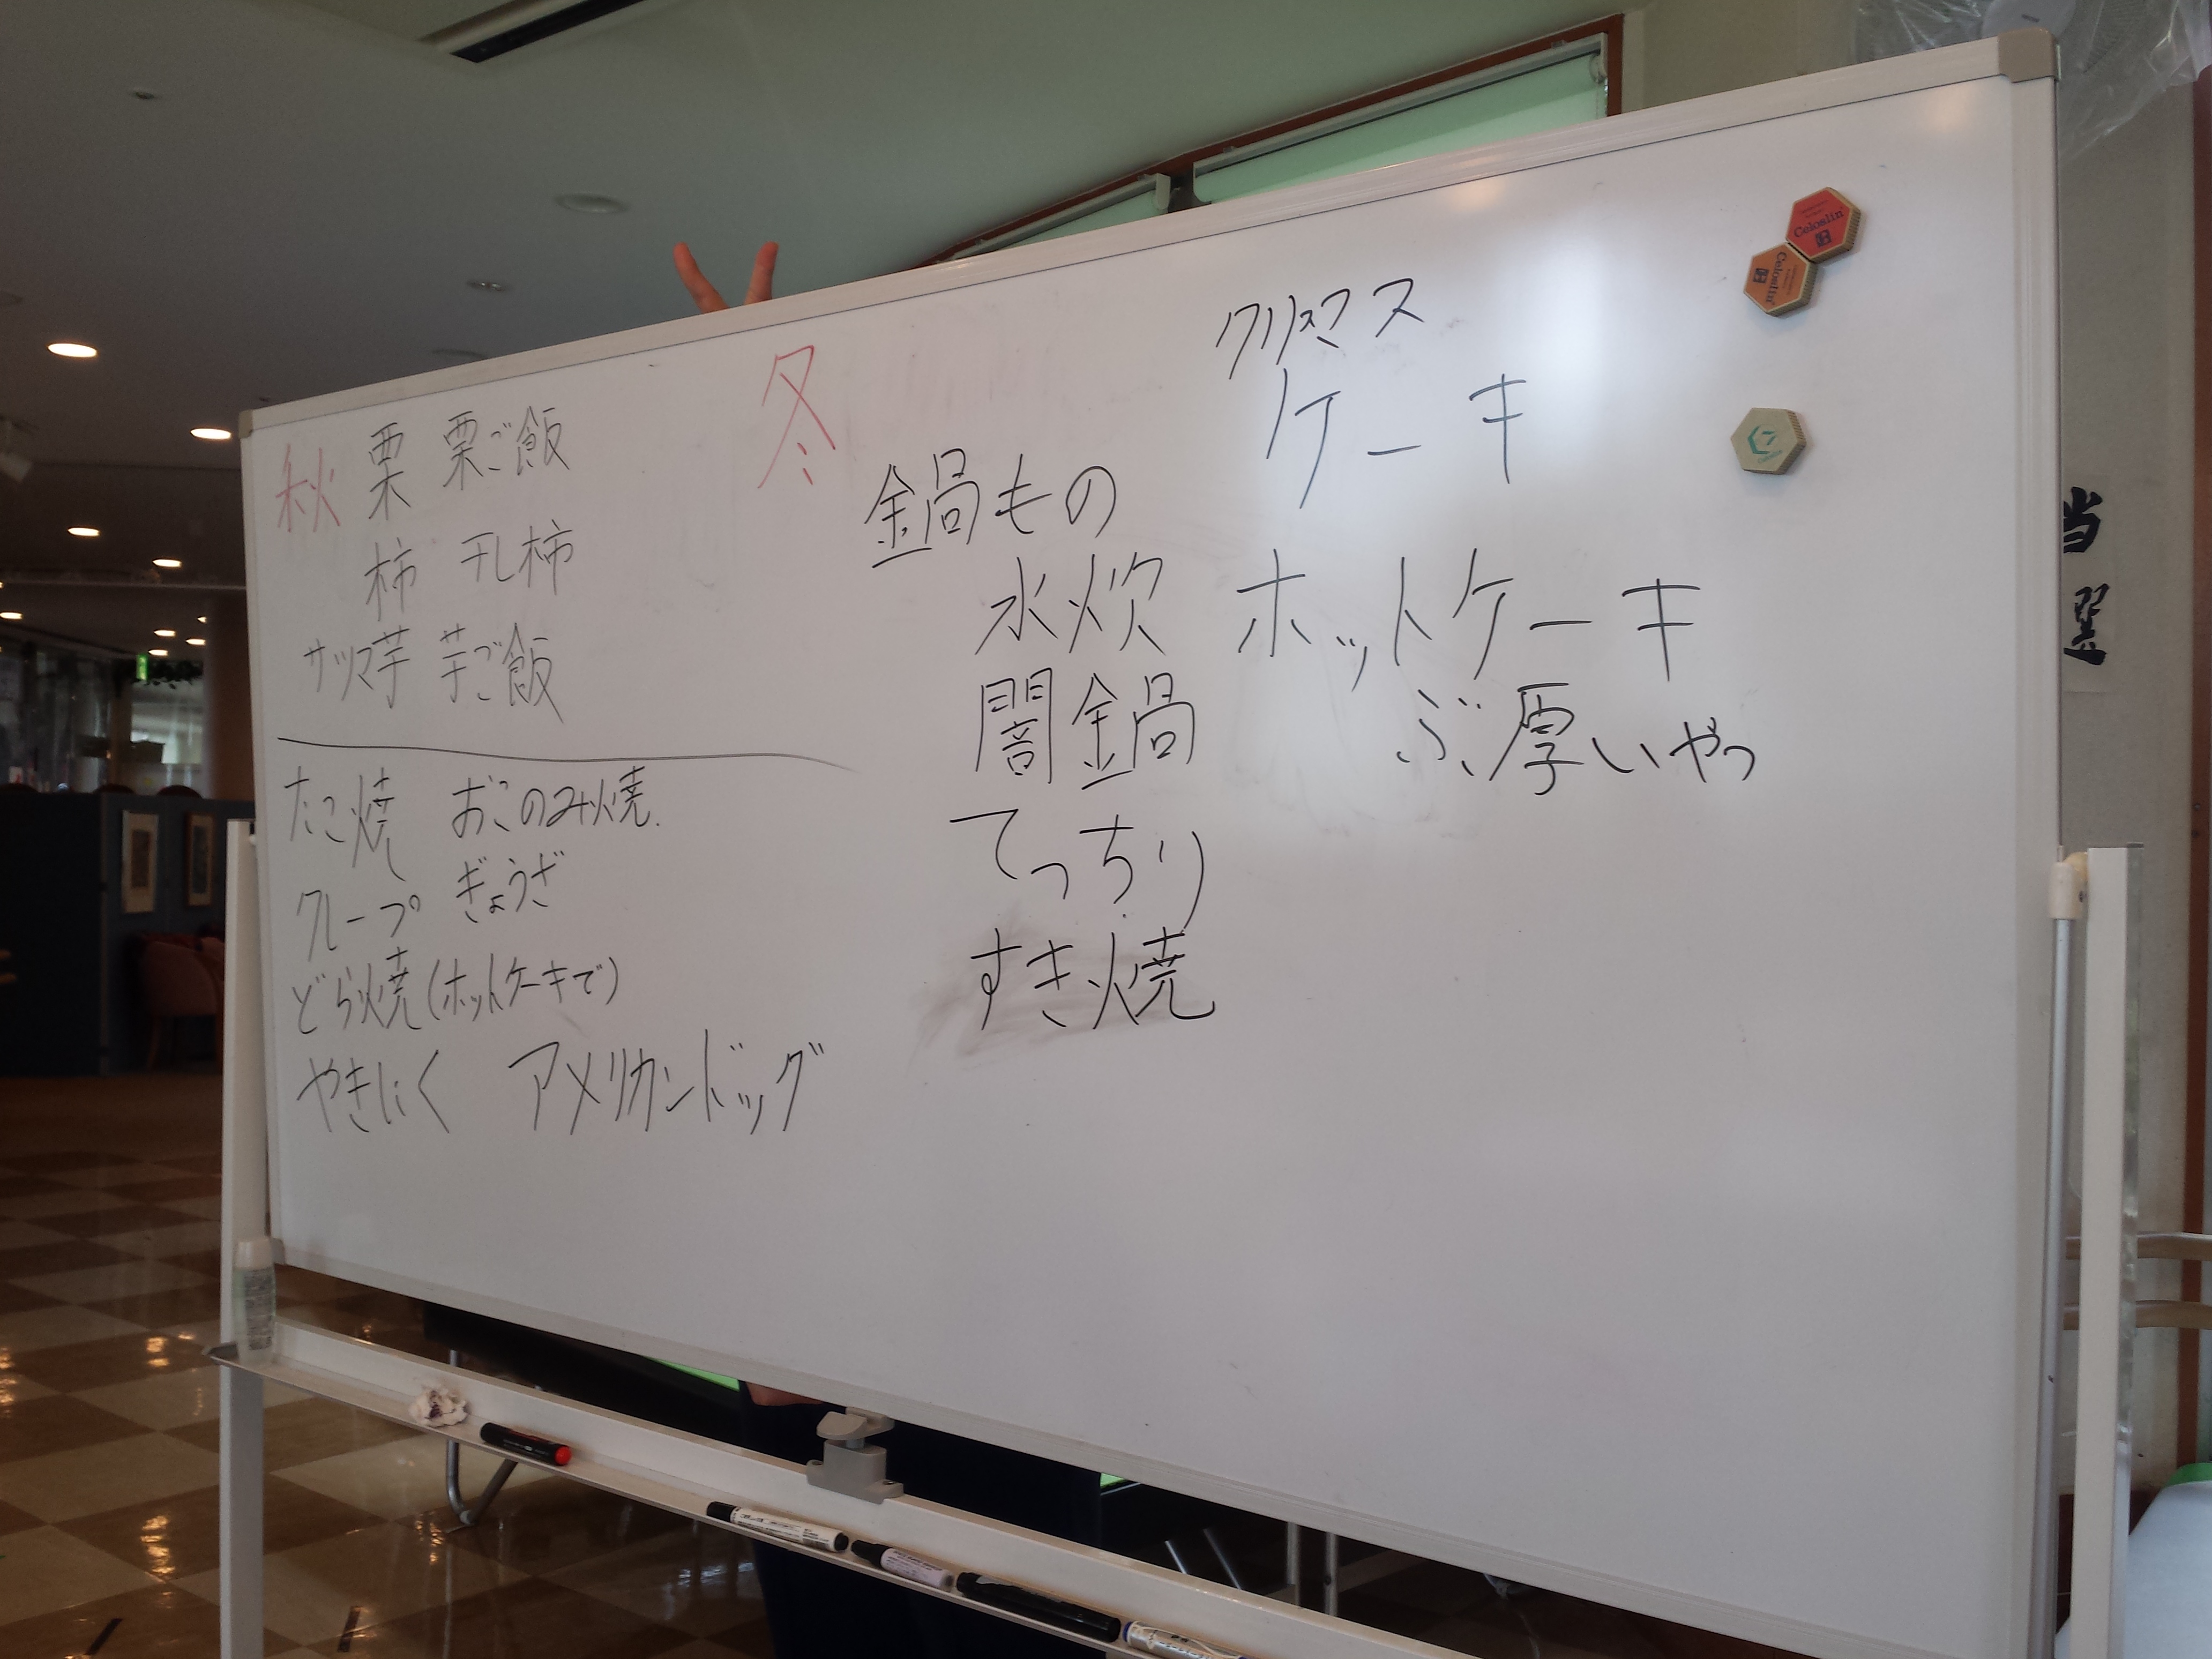 秋 栗 栗ご飯
柿 干し柿
サツマ芋 芋ご飯
たこ焼 おこのみ焼
クレープ ぎょうざ
どら焼(ホットケーキで)
やきにく アメリカンドッグ
冬
鍋もの
水炊
闇鍋
てっちり
すき焼
クリスマス
ケーキ
ホットケーキ
ぶ厚いやつ
Celoslin
Celoslin
当